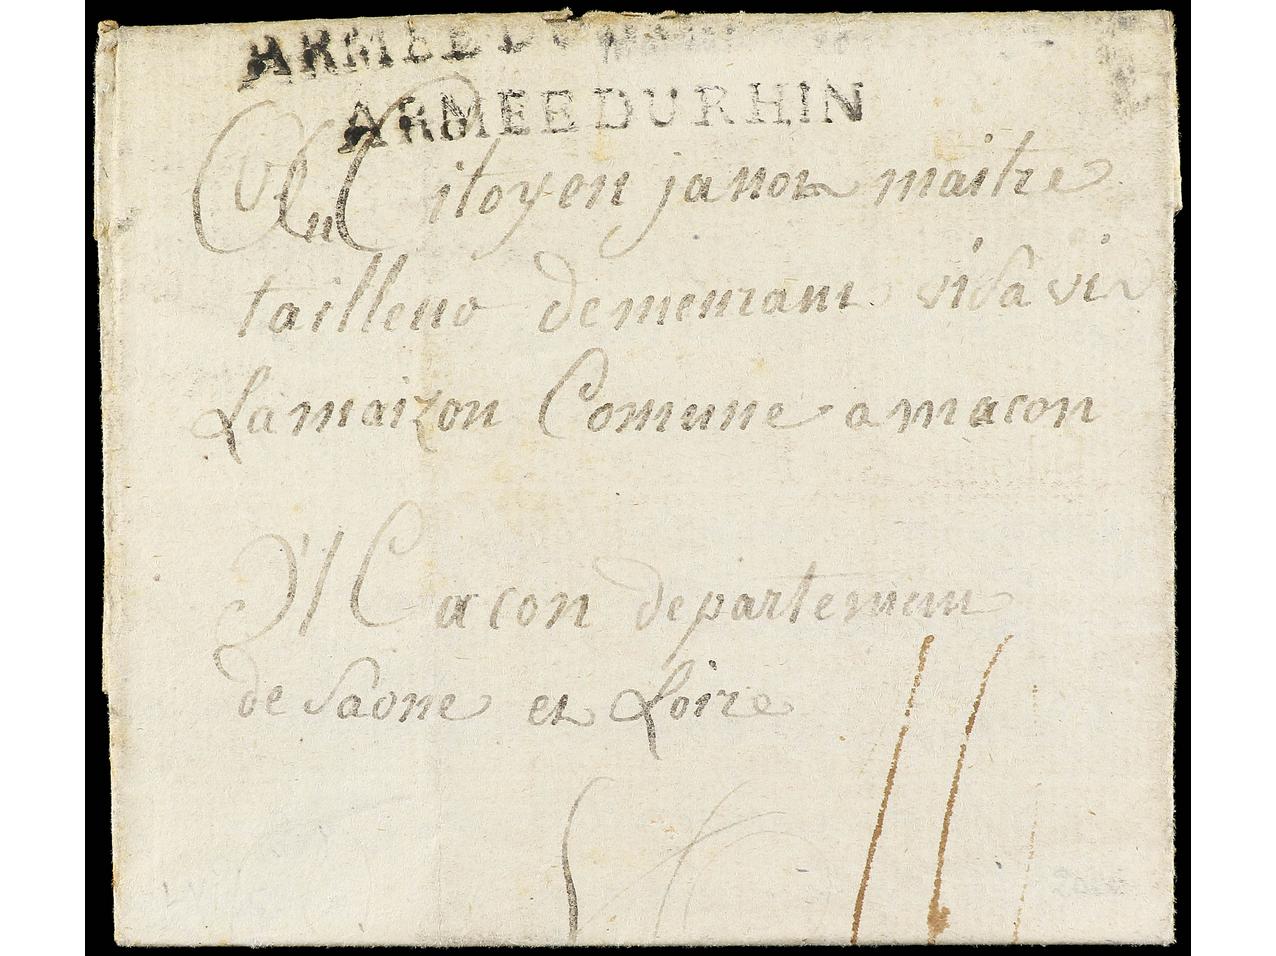 ARMEE DU
ARMEE DU RHIN
Au Citoyen janon maitre
tailleur demeurant visavi
La maizon Comune a macon
Macon departement
de Saone et Loire